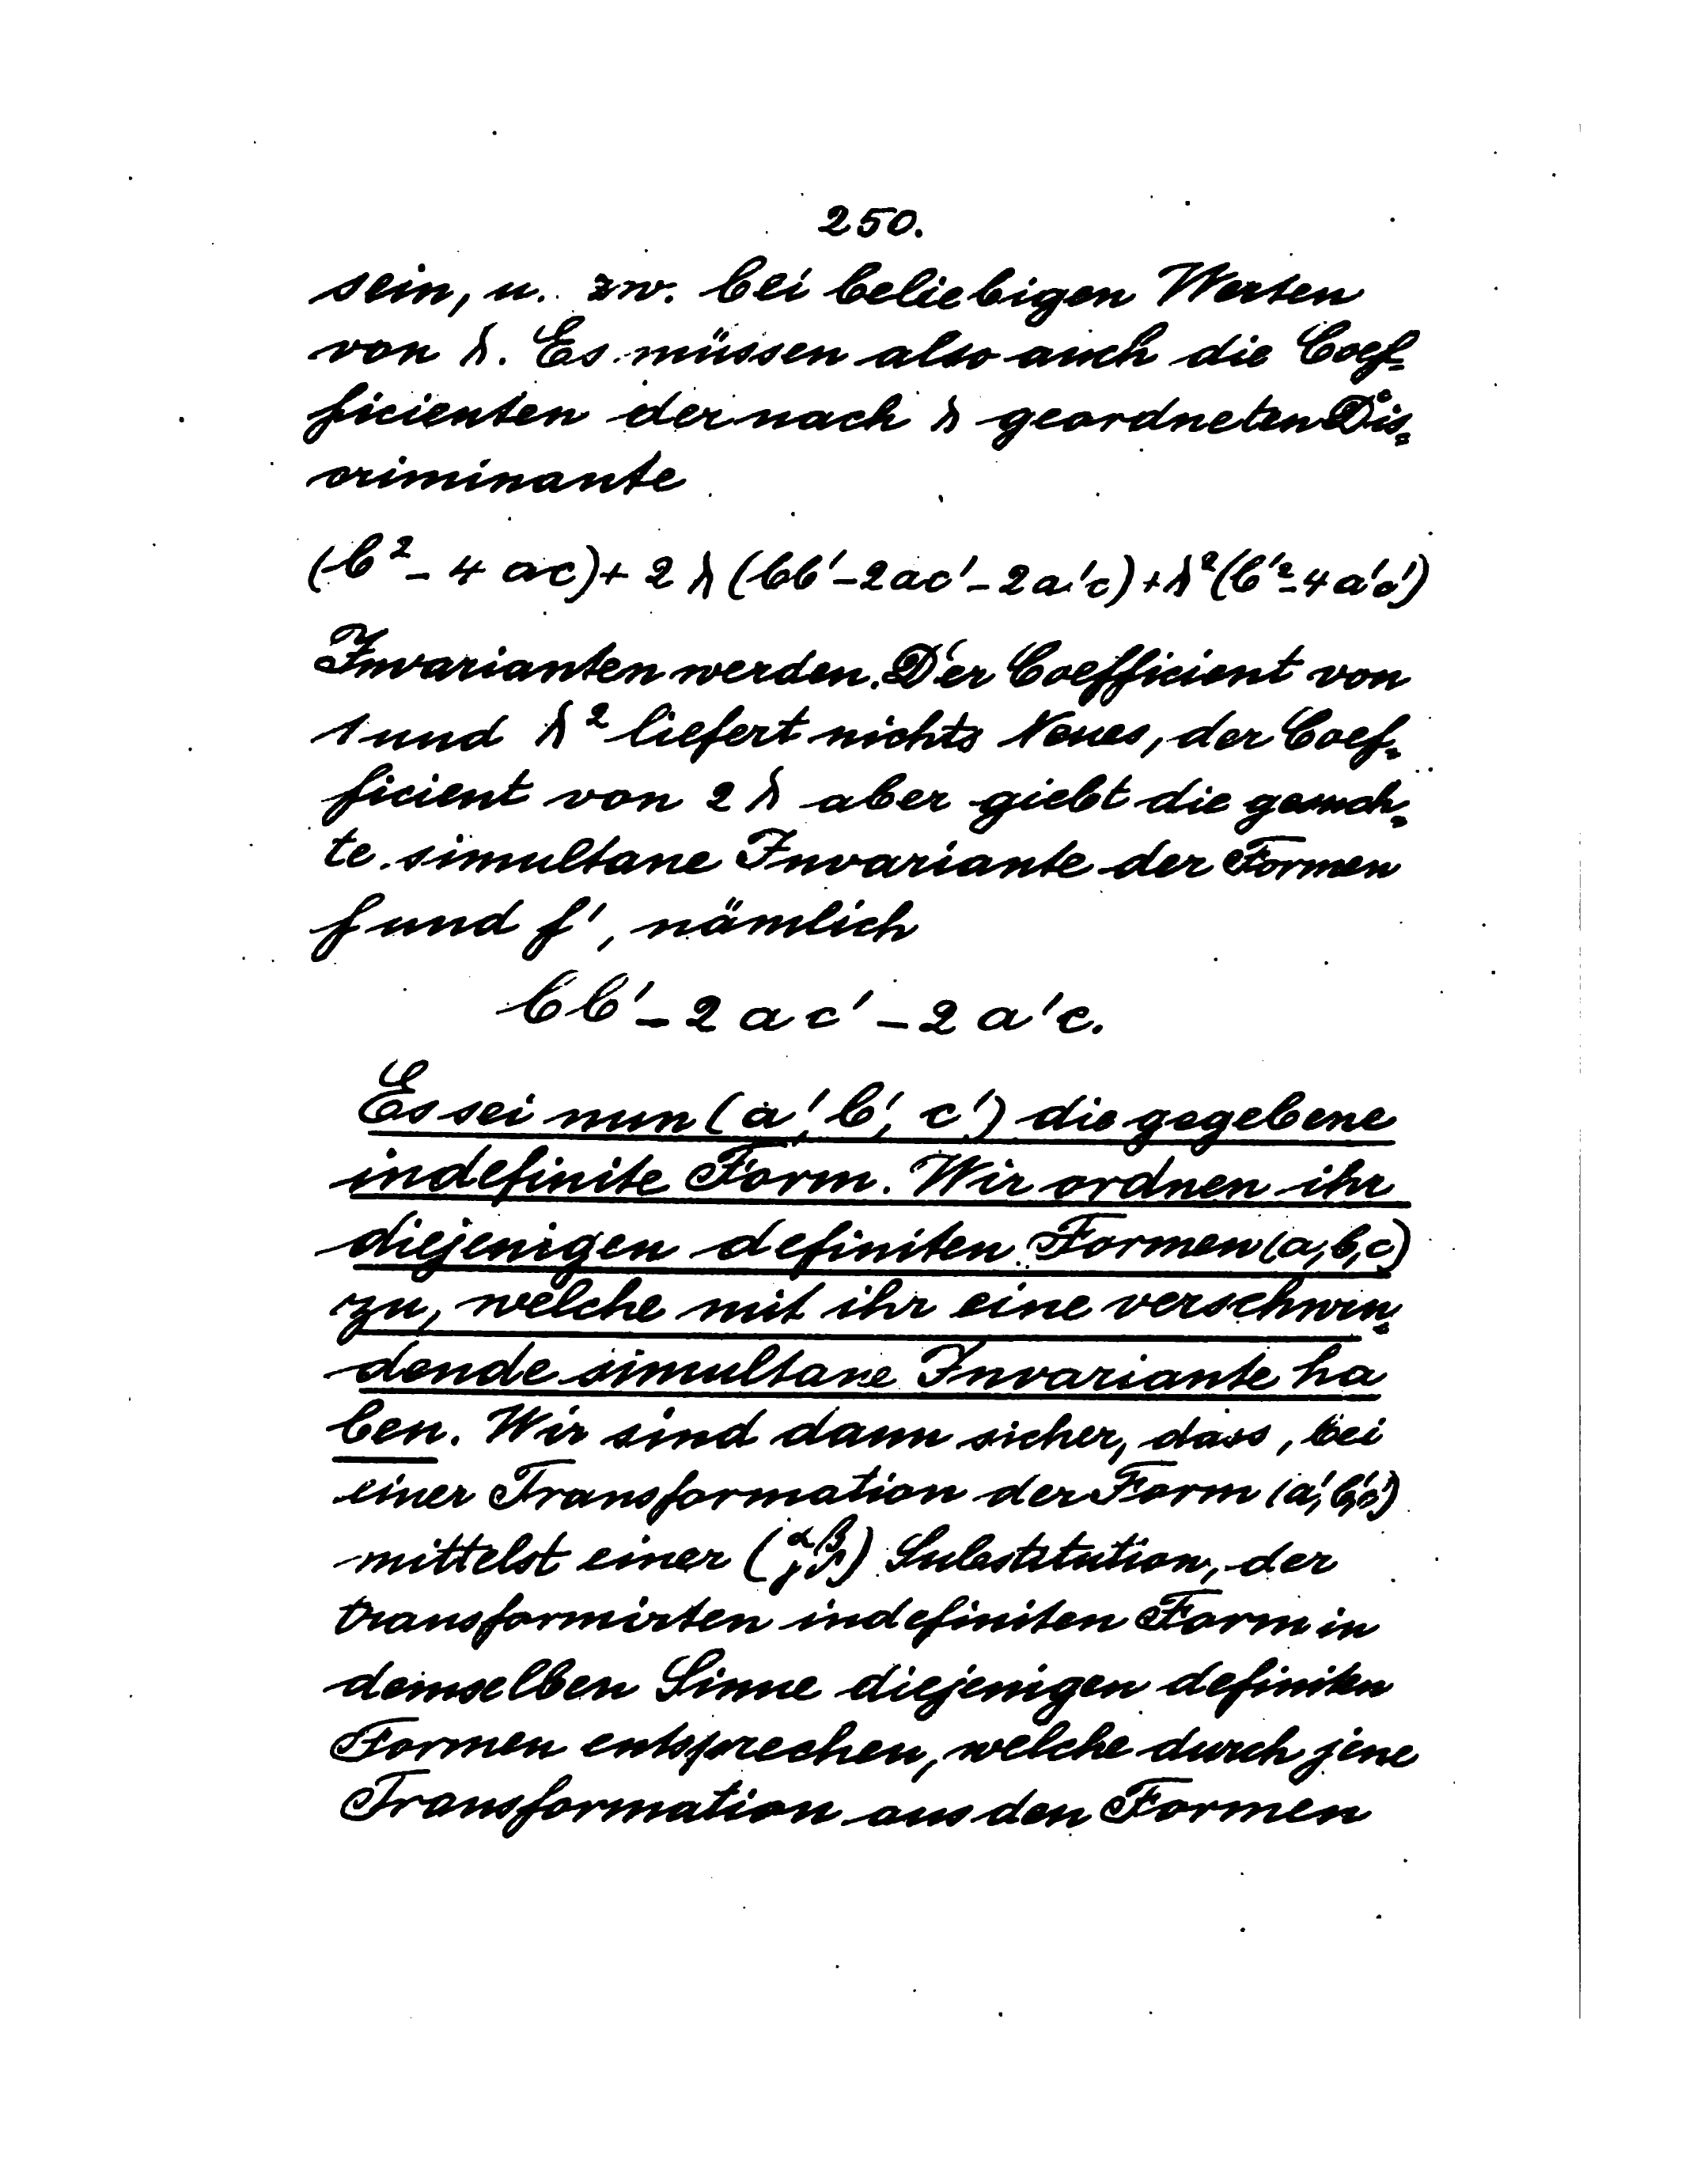 250.
sein, u. zw. bei beliebigen Werten
von λ. Es müssen also auch die Coef-
ficienten der nach λ geordneten Dis-
criminante
(b² - 4 ac) + 2 λ (bb' - 2ac' - 2a'c) + λ² (b'² - 4a'c')
Invarianten werden. Der Coefficient von
1 und λ² liefert nichts Neues, der Coef-
ficient von 2 λ aber giebt die gesuch-
te simultane Invariante der Formen
f und f', nämlich
bb' - 2 ac' - 2 a'c.
Es sei nun (a', b', c') die gegebene
indefinite Form. Wir ordnen ihr
diejenigen definiten Formen (a, b, c)
zu, welche mit ihr eine verschwin-
dende simultane Invariante ha
ben. Wir sind dann sicher, dass, bei
einer Transformation der Form (a', b', c')
mittelst einer (α β γ δ) Substitution, der
transformirten indefiniten Form in
demselben Sinne diejenigen definiten
Formen entsprechen, welche durch jene
Transformation aus den Formen